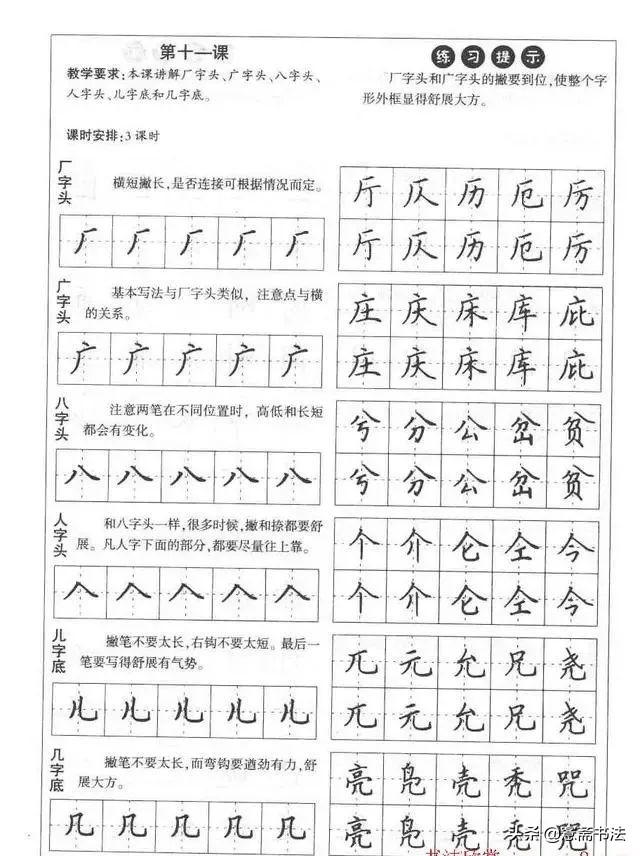 第十一课
教学要求:本课讲解厂字头、广字头、八字头、
人字头、儿字底和几字底。
课时安排:3课时
练习提示
厂字头和广字头的撇要到位,使整个字
形外框显得舒展大方。
厂字头
横短撇长,是否连接可根据情况而定。
厂厂厂厂厂
厅仄历厄厉
厅仄历厄厉
广字头
基本写法与厂字头类似，注意点与横
的关系。
广广广广广
庄庆床库庇
庄庆床库庇
八字头
注意两笔在不同位置时，高低和长短
都会有变化。
八八八八八
兮分公岔贫
兮分公岔贫
人字头
和八字头一样,很多时候,撇和捺都要舒
展。凡人字下面的部分,都要尽量往上靠。
人人人人人
个介仑仝今
个介仑仝今
儿字底
撇笔不要太长,右钩不要太短。最后一
笔要写得舒展有气势。
儿儿儿儿儿
兀元允兄尧
兀元允兄尧
几字底
撇笔不要太长,而弯钩要遒劲有力,舒
展大方。
几几几几几
亮凫壳秃咒
亮凫壳秃咒
书法欣赏
头条 @斋书法